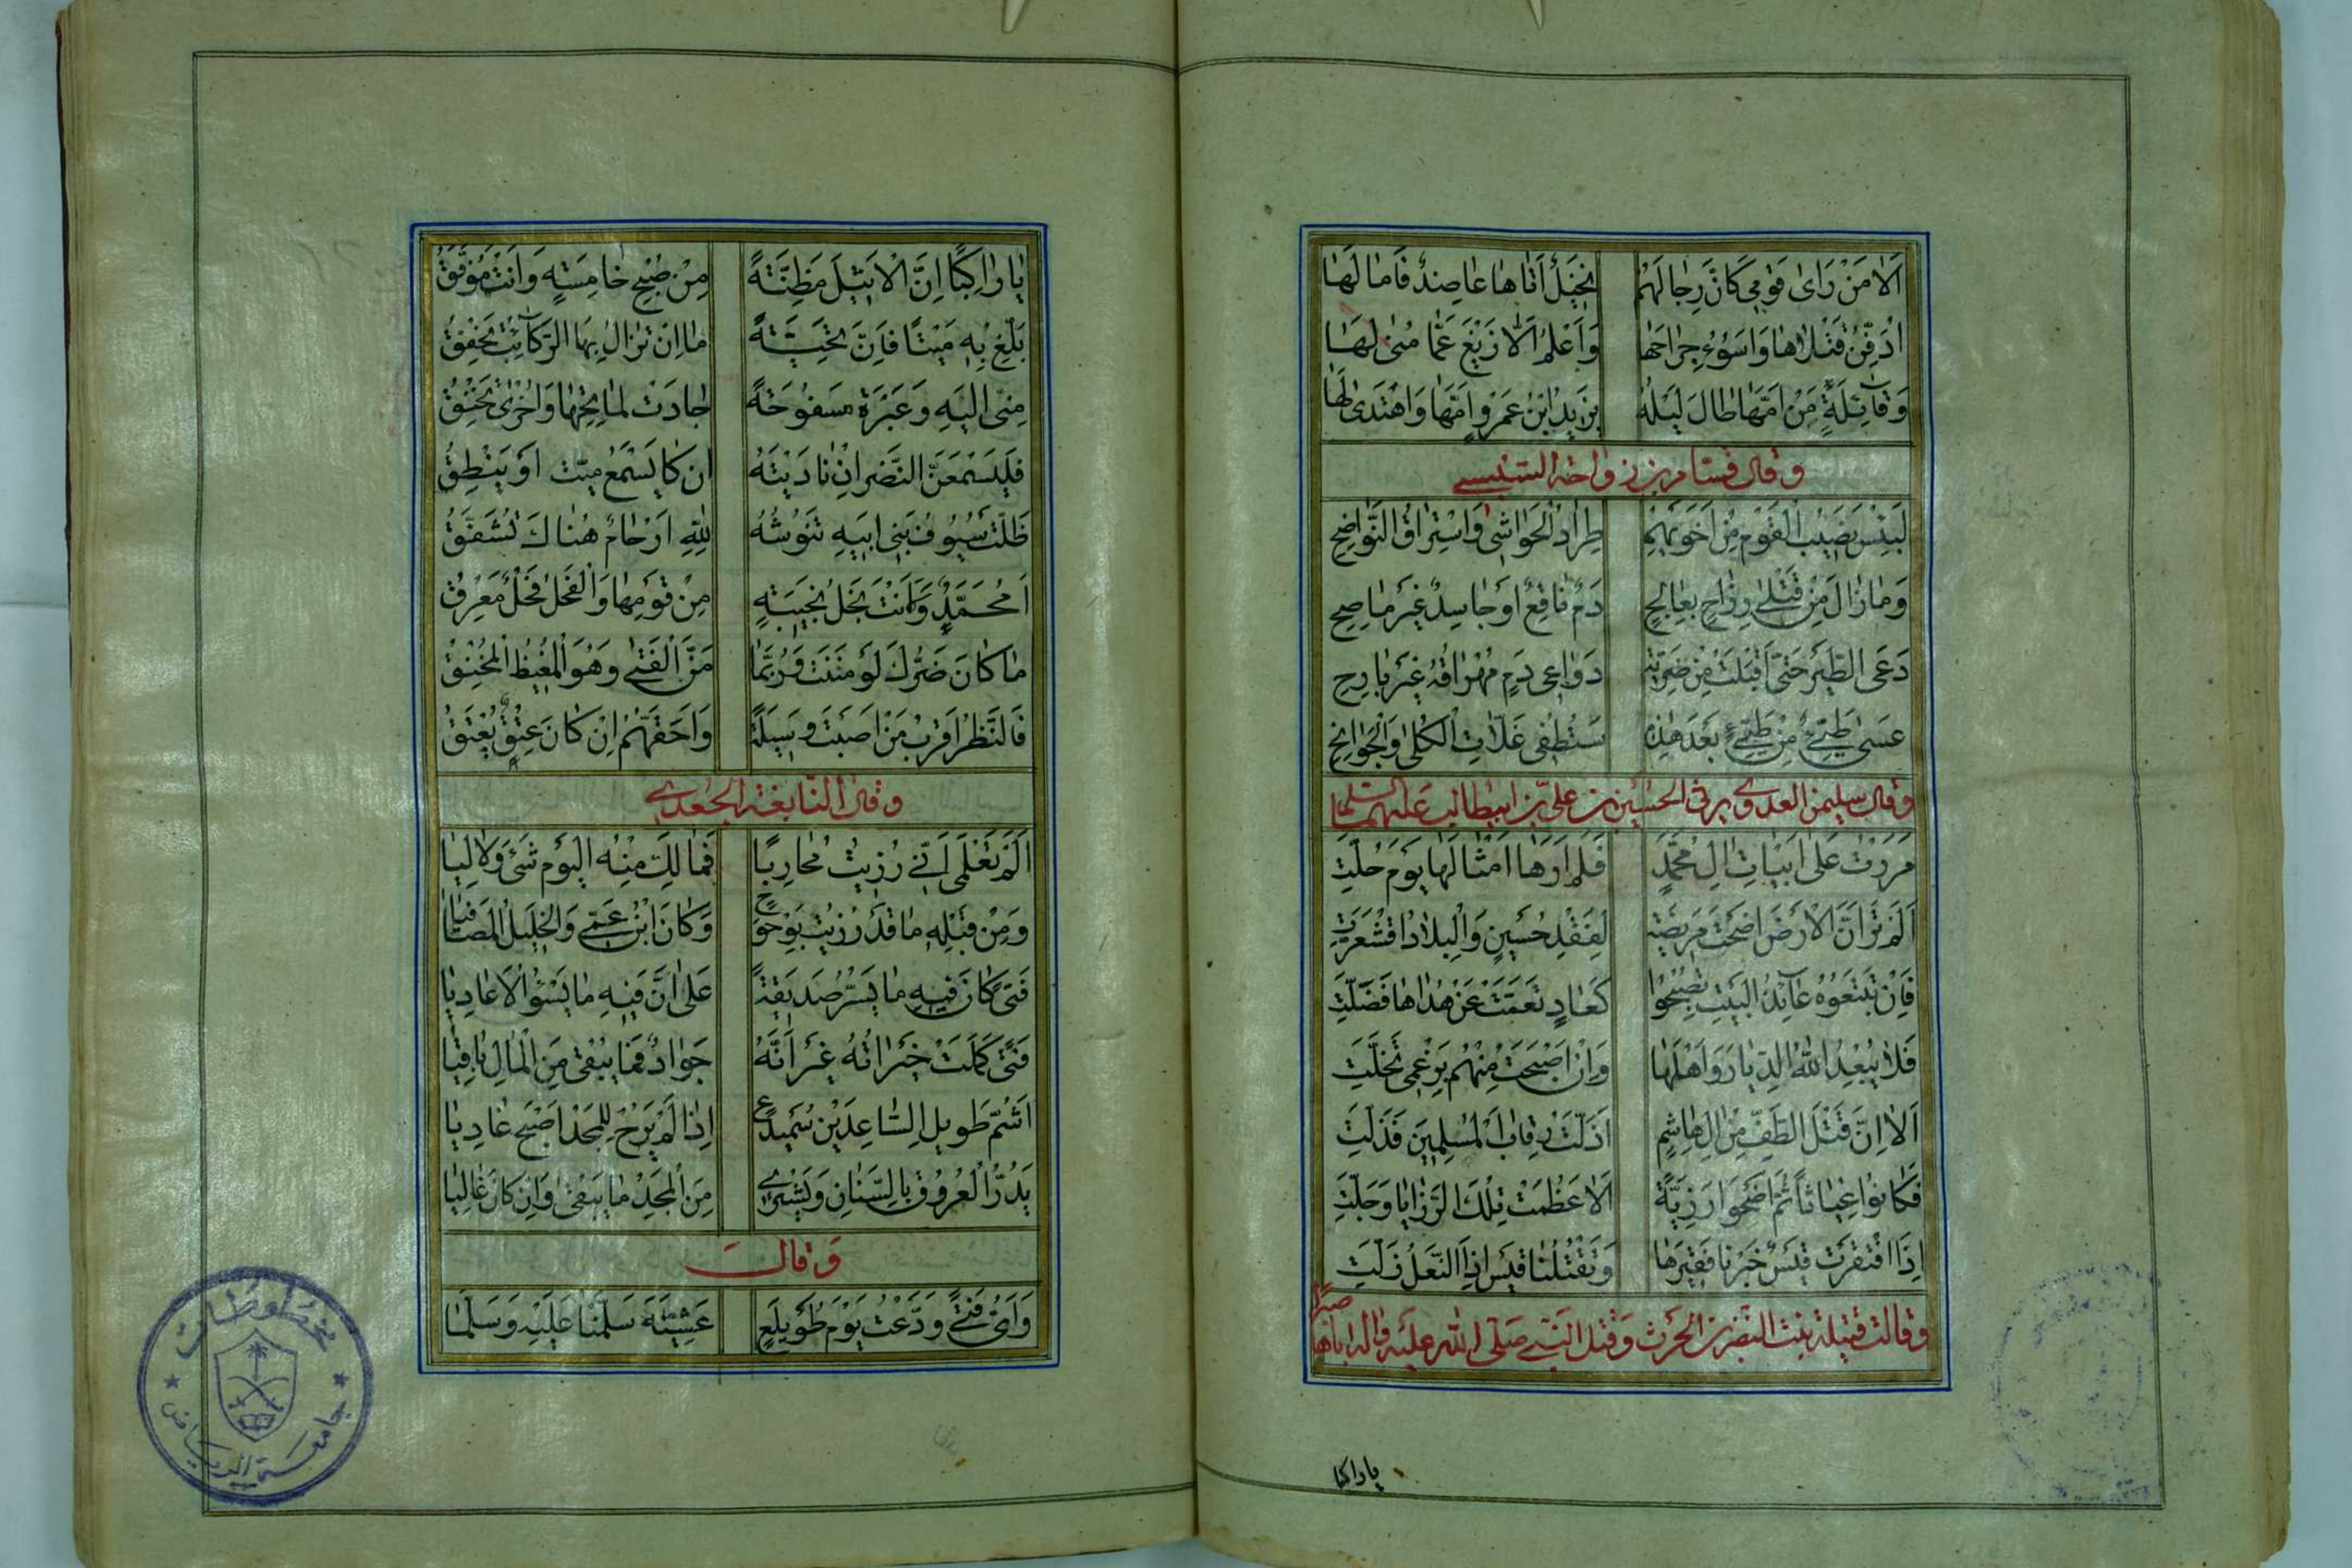 اَلا مَنْ رَاى قَومِى كَانَّ رِجالَهُم نَخِيْلٌ اَتاها عاصِدٌ فَامالَها
اُدَفِّنُ قَتْلاها وَاَسُوءُ جِراحَها وَاَعْلَمُ اَلّا زَيْغَ عَمّا مُنى لَها
وَقآئِلَةٍ مَنْ اَمَّها طالَ لَيْلُهُ يَزيدُ ابْنُ عَمْرٍو اَمَّها وَاهْتَدى لَها
وقال قسام بن رواحة السنبسى
لَبِئْسَ نَصيْبُ الْقَوْمِ مِن اَخَوَيْهِمِ طِرادُ الْحَواشى وَاسْتِراقُ النَّواضِحِ
وَمازالَ مِنْ قَتْلى رِزاحٍ بِعالِجٍ دَمٌ ناقِعٌ اَوْ جاسِدٌ غَيْرُ ماصِحِ
دَعَى الطَّيْرَ حَتّى اَقْبَلَتْ مِن ضَرِيّةٍ دَواعى دَمٍ مُهْراقُهُ غَيْرُ بارِحِ
عَسى طَيِّئٌ مِنْ طَيِّئٍ بَعْدَ هذِهِ سَتُطْفِى غَلّاتِ الْكُلى وَالْجَوانِحِ
وقال سليمن العدوى يرثى الحسين بن على بن ابيطالب عليهم السلام
مَرَرْتُ عَلى اَبْياتِ الِ مُحَمَّدٍ فَلَم اَرَها اَمْثالَها يَوْمَ حُلَّتِ
اَلَمْ تَرَ اَنَّ الْاَرْضَ اَضْحَتْ مَرِيْضَةً لِفَقْدِ حُسَيْنٍ وَالْبِلادُ اقْشَعَرَّتِ
فَاِنْ تَبْتَغُوهُ عآئِذَ الْبَيْتِ تُصْبِحُوا كَعادٍ تَعَمَّتْ عَنْ هُداها فَضَلَّتِ
فَلا يُبْعِدُ اللهُ الدِّيارَ وَاَهْلَها وَاِنْ اَصْبَحَتْ مِنْهُم بِرَغْمى تَخَلَّتِ
اَلا اِنَّ قَتْلَ الطَّفِّ مِنْ الِ هاشِمٍ اَذَلَّتْ رِقابَ الْمُسْلِمِيْنَ فَذَلَّتِ
فَكانُوا غِياثاً ثُمَّ اَضْحَوْا رَزِيَّةً اَلا عَظُمَتْ تِلْكَ الرَّزايا وَجَلَّتِ
اِذَا افْتَقَرَتْ قَيْسٌ جَبَرْنا فَقِيْرَها وَتَقْتُلُنا قَيْسٌ اِذَا النَّعْلُ زَلَّتِ
وقالت قتيلة بنت النضر بن الحرث وقتل النبى صلى الله عليه واله اباها صبرًا
ياراكبا
يا راكِبًا اِنَّ الْاَثيلَ مَظِنَّةٌ مِنْ صُبْحِ خامِسَةٍ وَاَنْتَ مُوَفَّقُ
بَلِّغْ بِهِ مَيْتًا فَاِنَّ تَحِيَّةً ما اِنْ تَزالُ بِهَا الرَّكآئِبُ تَخْفِقُ
مِنّى اِلَيْهِ وَعَبْرَةً مَسْفُوحَةً جادَتْ لِماتِحِها وَاُخْرى تَخْنُقُ
فَلْيَسْمَعَنَّ النَّضْرُ اِنْ نادَيْتَهُ ان كا يَسْمَعُ مَيّت اَوْ يَنْطِقُ
ظَلَّتْ سُيُوفُ بَنى اَبيهِ تَنُوشُهُ لِلّهِ اَرْحامٌ هُناكَ تُشَقَّقُ
اَمُحَمَّدٌ وَلَاَنْتَ نَجْلُ نَجيبَةٍ مِنْ قَوْمِها وَالْفَحْلُ فَحْلٌ مُعْرِقُ
ما كانَ ضَرَّكَ لَوْ مَنَنْتَ وَرُبَّما مَنَّ الْفَتى وَهُوَ الْمُغيظُ الْمُحْنَقُ
فَالنَّظْرُ اَقْرَبُ مَنْ اَصَبْتَ وَسيلَةً وَاَحَقُّهُم اِنْ كانَ عِتْقٌ يُعْتَقُ
وقال النابغة الجعدى
اَلَمْ تَعْلَمى اَنّى رُزِيتُ مُحارِبًا فَمالَكِ مِنْهُ الْيَوْمَ شَىْءٌ وَلا لِيا
وَمِنْ قَبْلِهِ ما قَدْ رُزِيتُ بِوَحْوَحٍ وَكانَ ابْنُ عَمّى وَالْخَليلَ الْمُصافيا
فَتىً كانَ فيهِ ما يَسُرُّ صَديقَهُ عَلى اَنَّ فيهِ ما يَسُوُا الْاَعادِيا
فَتىً كَمُلَتْ خَيْراتُهُ غَيْرَ اَنَّهُ جَوادٌ فَما يُبْقى مِنَ الْمالِ باقِيا
اَشَمَّ طَويلِ السّاعِدَيْنِ سَمَيْدَعٍ اِذا لَمْ يَرُحْ لِلْمَجْدِ اَصْبَحَ غادِيا
يَدُرُّ الْعُرُوقَ بِالسِّنانِ وَيَشْتَرى مِنَ الْمَجْدِ ما يَبْقى وَاِنْ كانَ غالِيا
وقال
وَاَىُّ فَتىً وَدَّعْتُ يَوْمَ طُوَيْلِعٍ عَشِيَّةَ سَلَّمْنا عَلَيْهِ وَسَلَّما
مخطوطات
جامعة الرياض